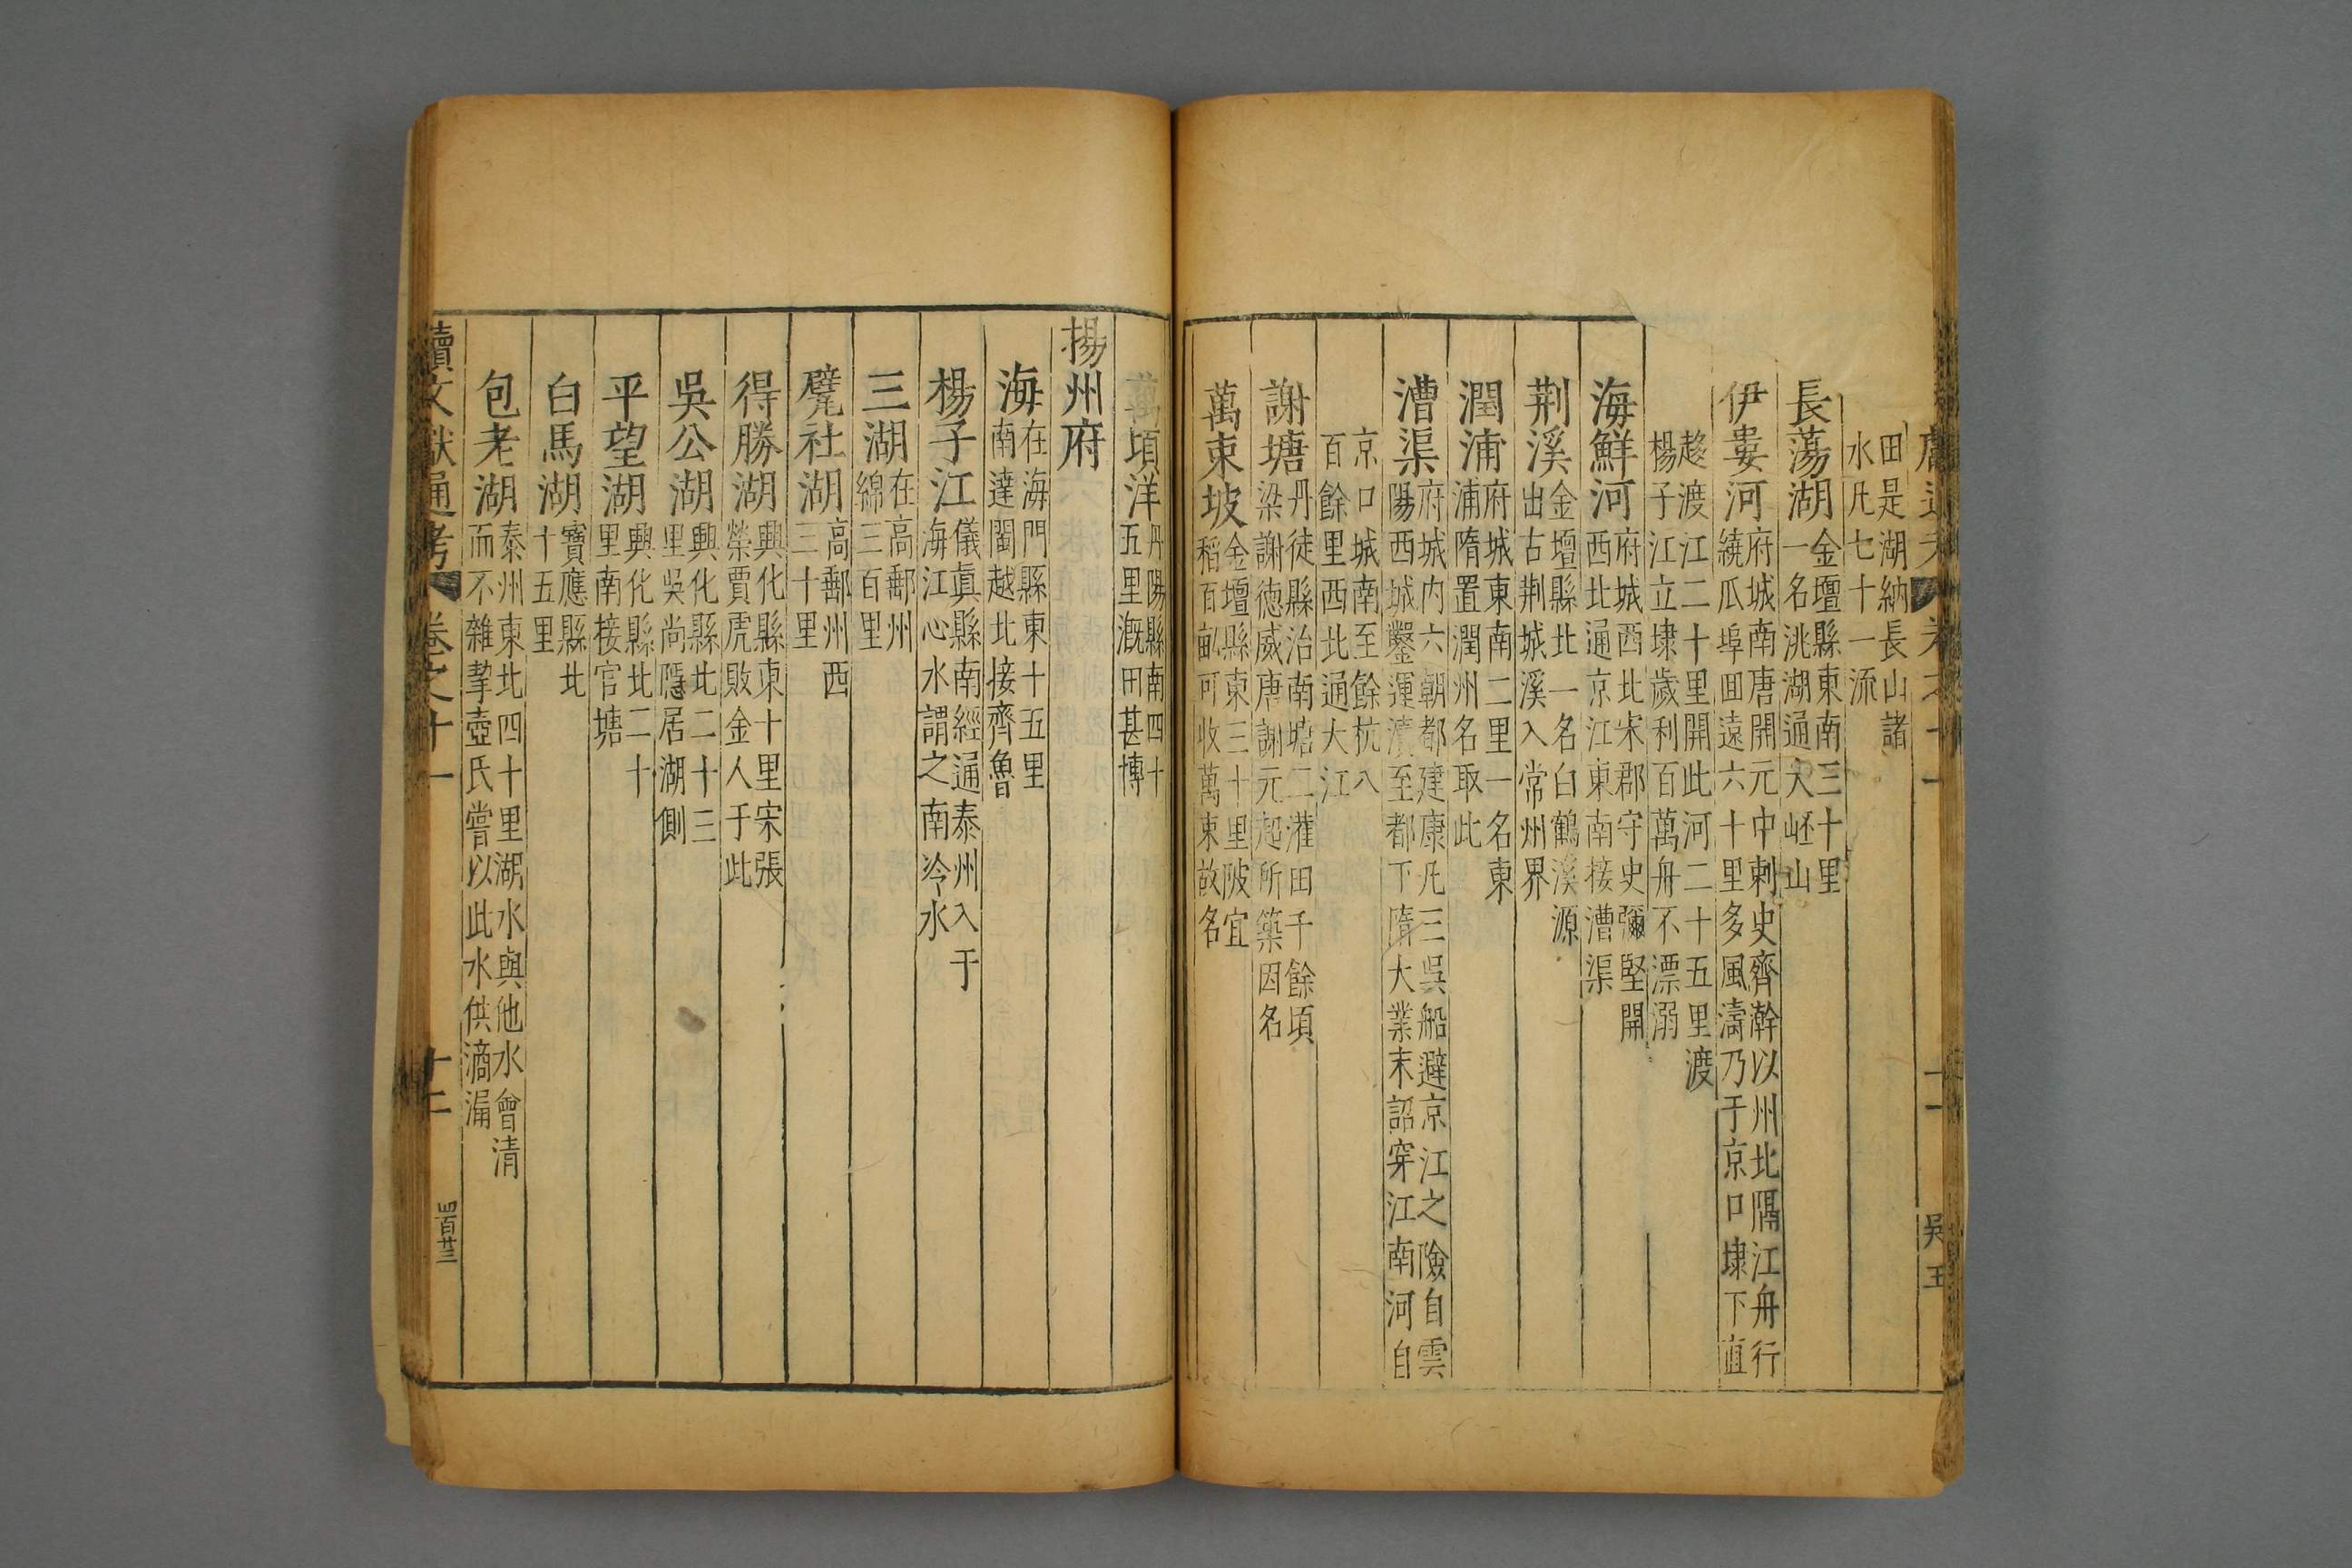 田是湖納長山諸
水凡七十一流
長蕩湖金壇縣東南三十里
一名洮湖通大岯山
伊婁河府城南唐開元中刺史齊澣以州北隔江舟行
繞瓜埠回遠六十里多風濤乃于京口埭下直
趍渡江二十里開此河二十五里渡
楊子江立埭歲利百萬舟不漂溺
海鮮河府城西北宋郡守史彌堅開
西北通京江東南接漕渠
荆溪金壇縣北一名白鶴溪源
出古荆城溪入常州界
潤浦府城東南二里一名東
浦隋置潤州名取此
漕渠府城内六朝都建康凡三吳船避京江之險自雲
陽西城鑿運瀆至都下隋大業末詔穿江南河自
京口城南至餘杭八
百餘里西北通大江
謝塘丹徒縣治南塘二灌田千餘頃
梁謝德威唐謝元起所築因名
萬束坡金壇縣東三十里陂宜
稻百畝可收萬束故名
萬頃洋丹陽縣南四十
五里溉田甚博
揚州府
海在海門縣東十五里
南達閩越北接齊魯
楊子江儀眞縣南經通泰州入于
海江心水謂之南冷水
三湖在高郵州
綿三百里
甓社湖高郵州西
三十里
得勝湖興化縣東十里宋張
榮賈虎敗金人于此
吳公湖興化縣北二十三
里吳尚隱居湖側
平望湖興化縣北二十
里南接官塘
白馬湖寶應縣北
十五里
包老湖泰州東北四十里湖水與他水會清
而不雜挈壺氏嘗以此水供滴漏
續文獻通考 卷之十一 十二 四百廿三